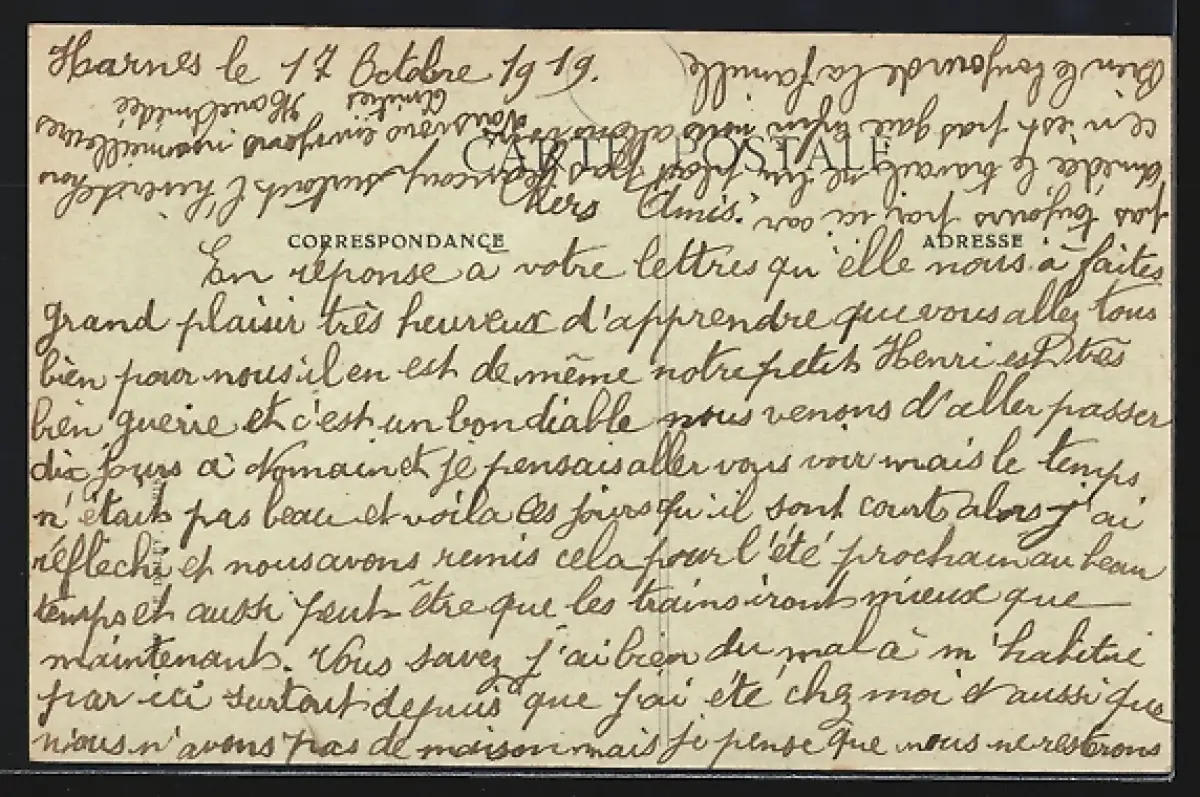 Harnes le 17 Octobre 1919.
CARTE POSTALE
Chers Amis.
CORRESPONDANCE
ADRESSE
En réponse à votre lettres qu'elle nous à faites
grand plaisir très heureux d'apprendre que vous allez tous
bien pour nous il en est de même notre petit Henri est très
bien guerie et c'est un bon diable nous venons d'aller passer
dix jours à Nomain et je pensais aller vous voir mais le temps
n'était pas beau et voila les jours qu'il sont court alors j'ai
réfléchi et nous avons remis cela pour l'été prochain au beau
temps et aussi peut-être que les trains iront mieux que
maintenant. Vous savez j'ai bien du mal à m'habitué
par ici surtout depuis que j'ai été chez moi et aussi que
nous n'avons pas de maison mais je pense que nous ne resterons
pas toujours par ici car
Amédée le travail ne lui plait pas beaucoup surtout l'hiver
ce n'est pas gaie enfin nous allons
Bien le bonjour de la famille
Nous vous envoyons nos meilleures
Amitiés
Amédée